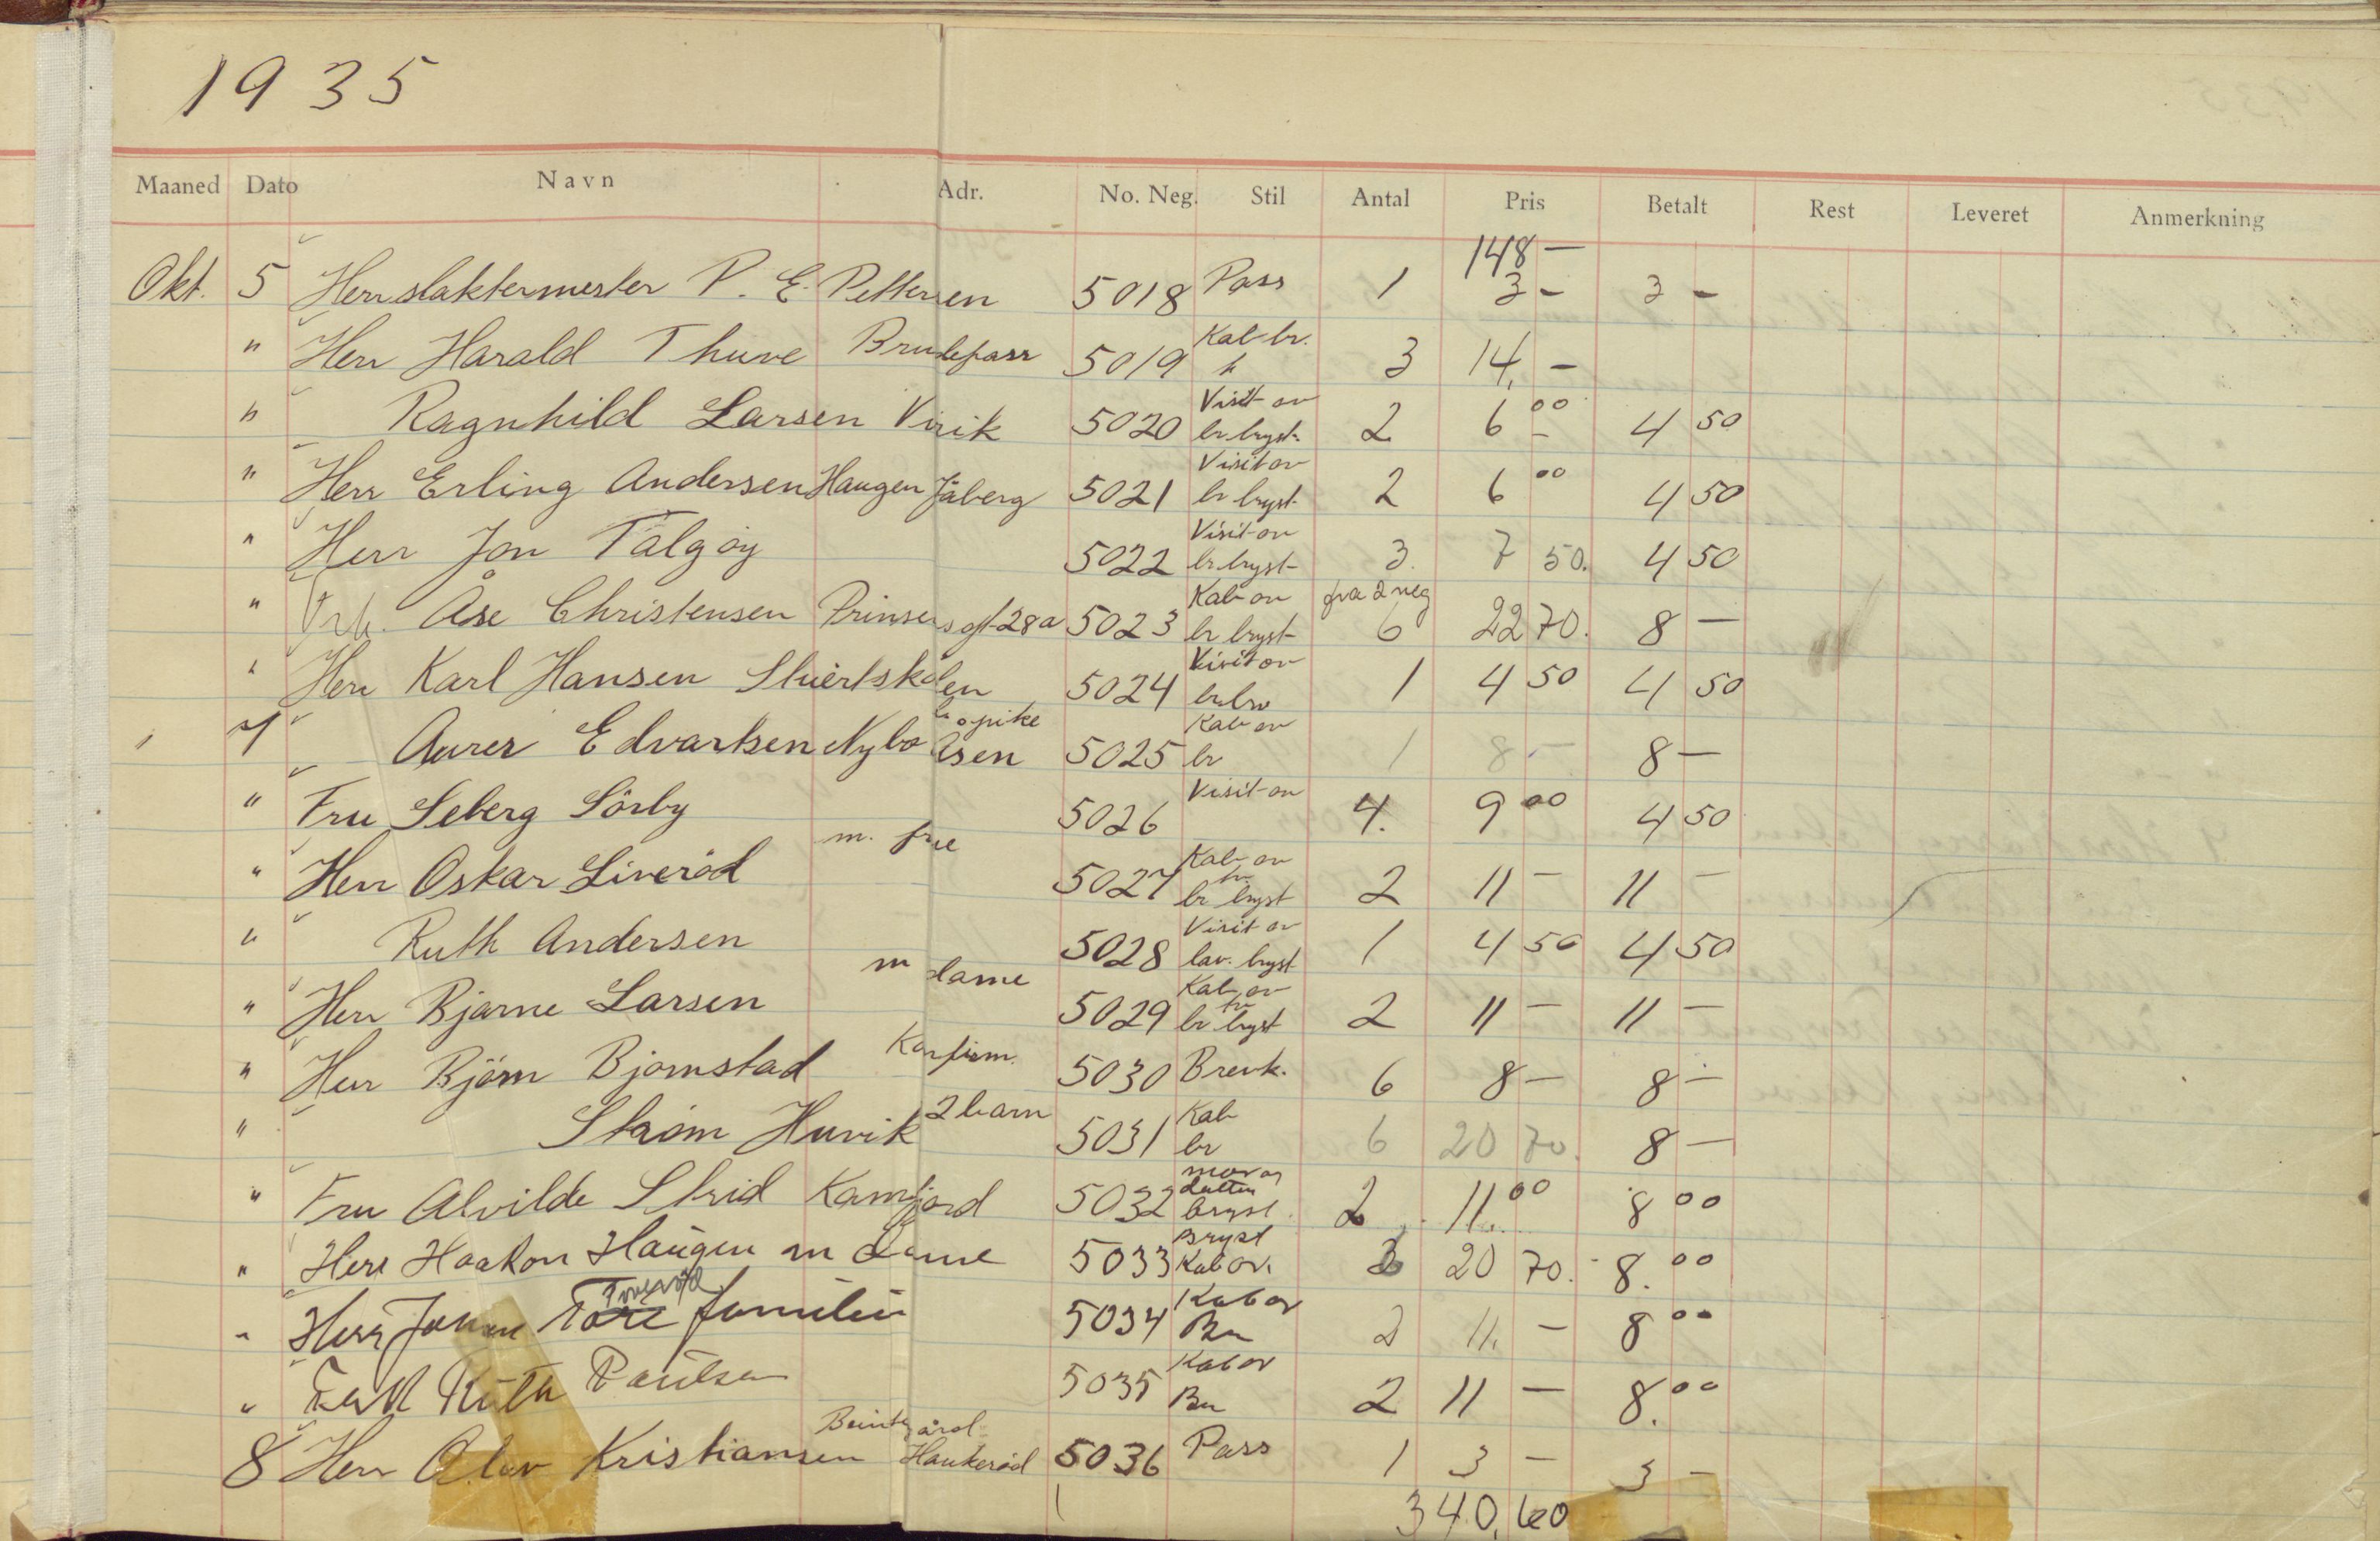 1935
Maaned Dato Navn Adr. No. Neg. Stil Antal Pris Betalt Rest Leveret Anmerkning
148 —
Okt. 5 Herr slaktermester P. E. Pettersen 5018 Pass 1 3 - 3 -
Kab br.
" Herr Harald Thuve Brudepass 5019 " 3 14, -
Visit ov
" Ragnhild Larsen Virik 5020 br. bryst- 2 6 00 4 50
Visit ov
" Herr Erling Andersen Haugen Jåberg 5021 br bryst- 2 6 00 4 50
Visit ov
" Herr Jon Talgøy 5022 br. bryst- 3. 7 50. 4 50
Kab ov fra 2 neg
" Frk. Åse Christensen Prinsensgt 28a 5023 br bryst- 6 22 70. 8 —
Visit ov
" Herr Karl Hansen 5024 1 4 50 4 50
Kab ov
7 Edvartsen Nybo Åsen 5025 br 1 8 - 8 —
Visit ov
" Fru Seberg Sørby 5026 4. 9 00 4 50
m. frue
Kab ov
" Herr Oskar Liverød 5027 br bryst 2 11 - 11 -
Visit ov
" Ruth Andersen 5028 lav. bryst 1 4 50 4 50
m dame
Kab ov
" Herr Bjarne Larsen 5029 br bryst 2 11 - 11 -
" Herr Bjørn Bjørnstad Konfirm. 5030 Brevk. 6 8 — 8 -
2 barn
Kab
" Strøm Huvik 5031 br 6 20 70. 8 —
mor og
datter
" Fru Alvilde Strid Kamfjord 5032 bryst 2 11.00 8 00
Bryst
" Herr Haakon Haugen m dame 5033 Kab ov. 3 20 70. 8.00
Kab ov
" Herr Johan Tore familie 5034 Br 2 11. — 8 00
Kab ov
" Ruth Paulsen 5035 Br 2 11 — 8.00
8 Herr Olav Kristiansen Haukerød 5036 Pass 1 3 - 3 -
340,60